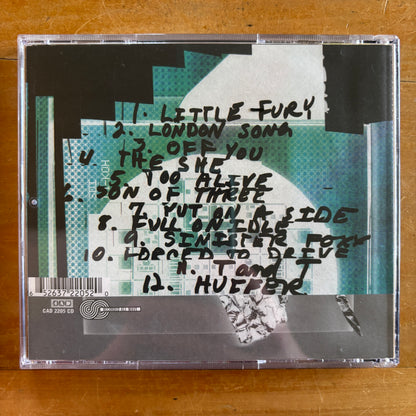 1. LITTLE FURY
2. LONDON SONG
3. OFF YOU
4. THE SHE
5 TOO ALIVE
6. SON OF THREE
7. PUT ON A SIDE
8. FULL ON IDLE
9. SINISTER FOXX
10. FORCED TO DRIVE
11. T and T
12. HUFFER
6 52637 22052 0
CAD 2205 CD